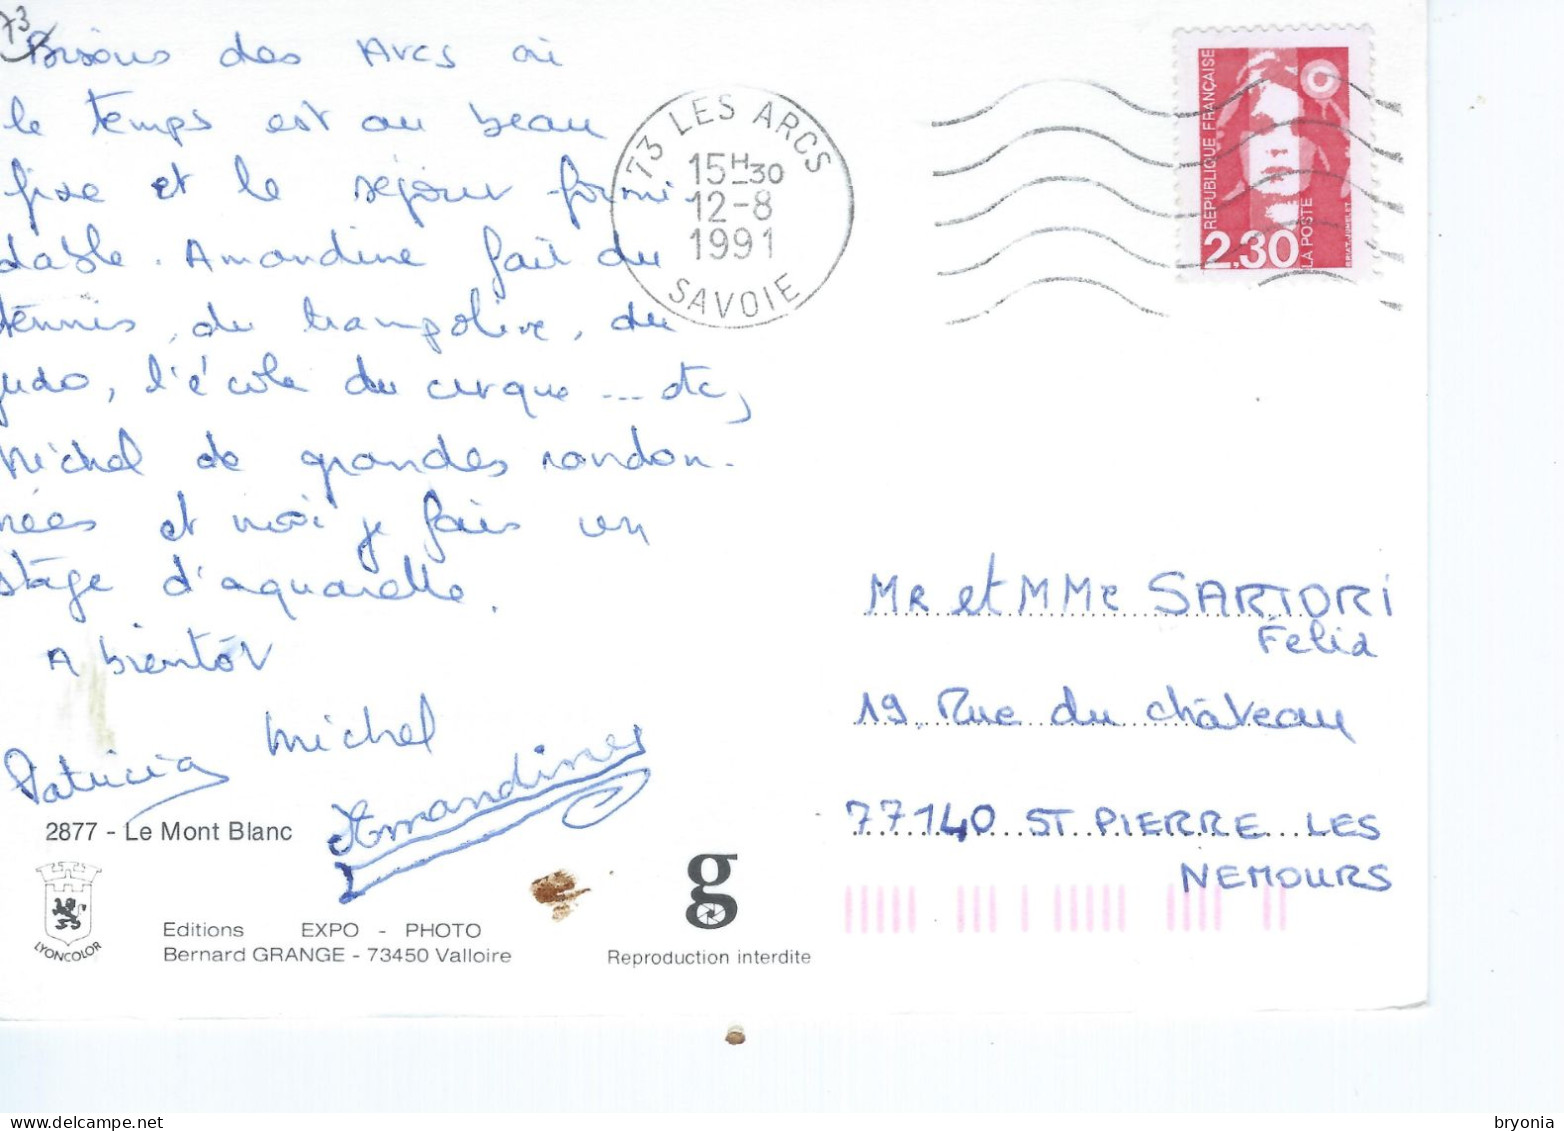 73
Bisous des Arcs où
le temps est au beau
fixe et le séjour formi-
dable. Amandine fait du
tennis, du trampoline, du
judo, l'école du cirque ... etc,
Michel de grandes randon-
nées et moi je fais un
stage d'aquarelle.
A bientôt
Patricia Michel
Amandine
2877 - Le Mont Blanc
LYONCOLOR
Editions EXPO - PHOTO
Bernard GRANGE - 73450 Valloire
g
Reproduction interdite
73 LES ARCS
15H30
12-8
1991
SAVOIE
REPUBLIQUE FRANÇAISE
2.30
LA POSTE
BRIAT-JUMELET
MR et MMe SARTORI
Felix
19 Rue du château
77140 ST PIERRE LES
NEMOURS
bryonia